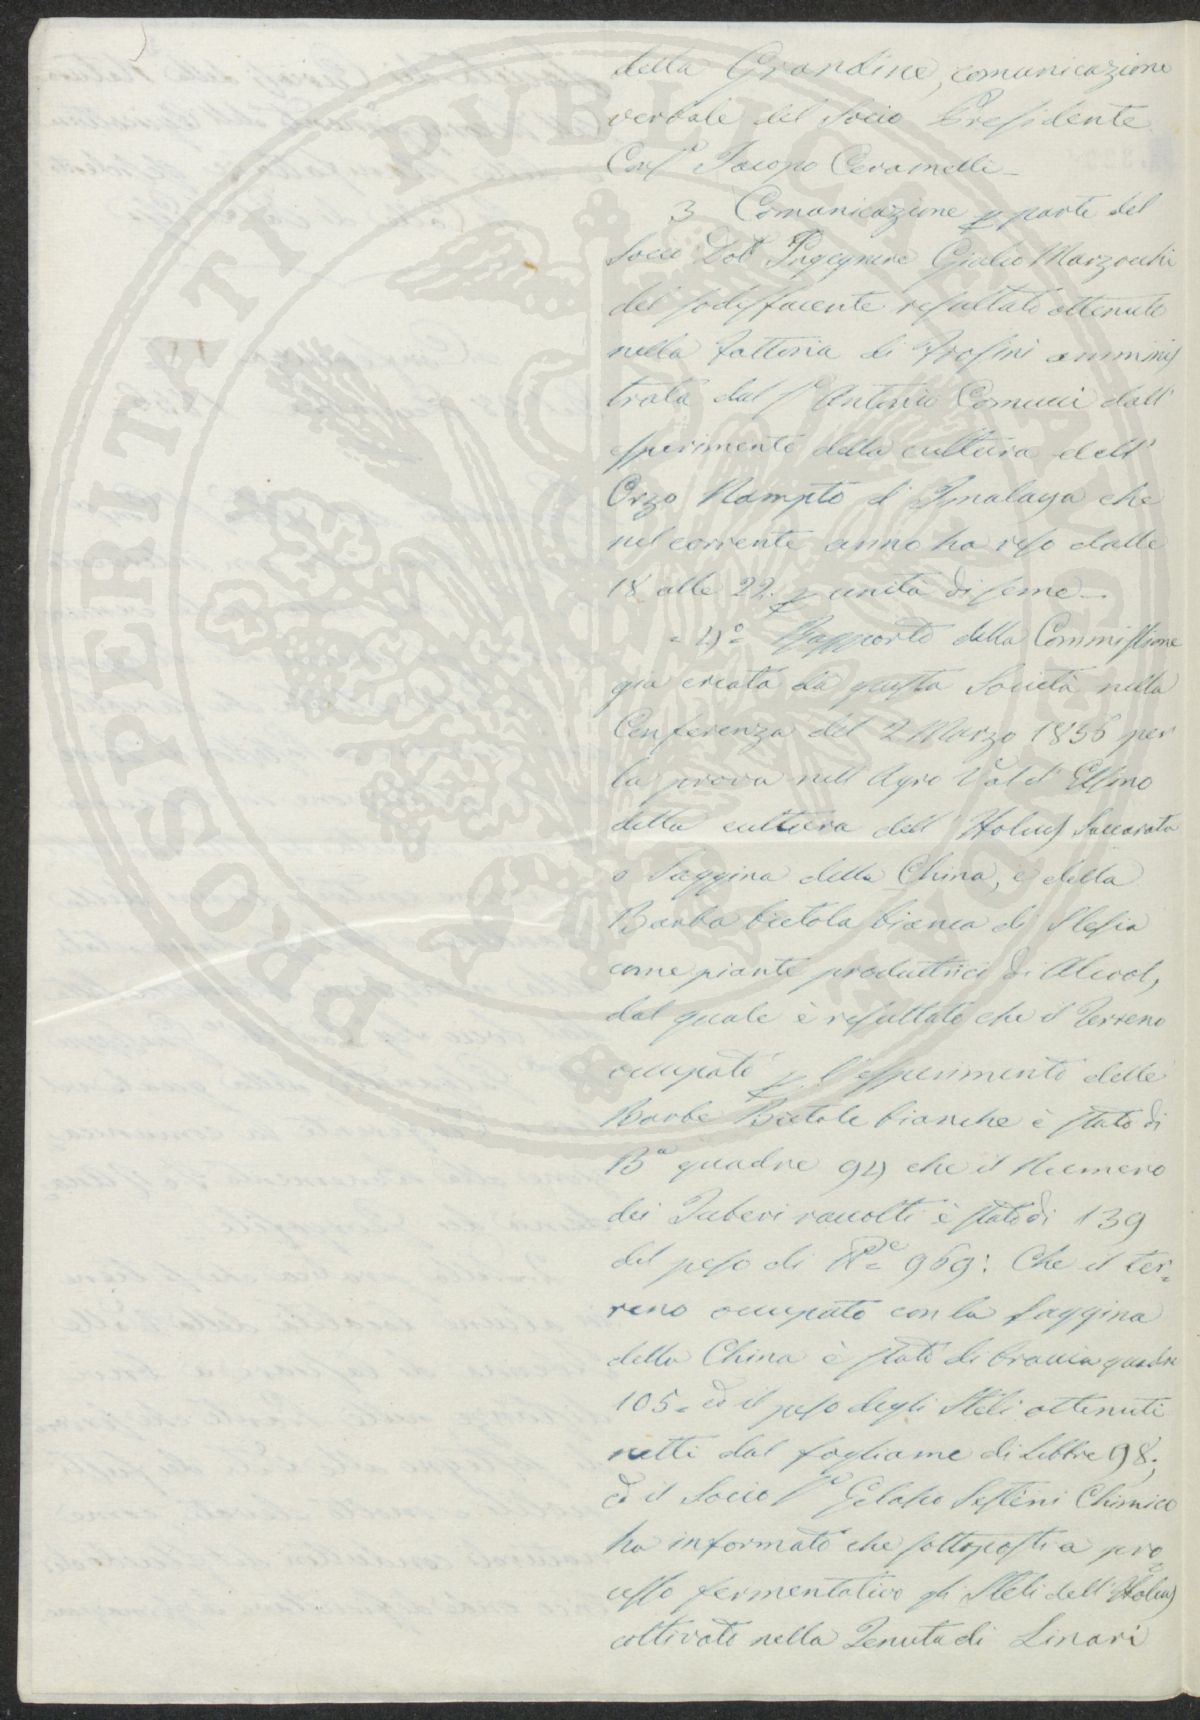 della Grandine, comunicazione
verbale del Socio Presidente
Cav.e Jacopo Ceramelli_
3 Comunicazione p parte del
Socio Dott Ingegnere Giulio Marzocchi
del sodisfacente resultato ottenuto
nella Fattoria di Frosini amminis
trata dal S.e Antonio Comucci dall'
esperimento della cultura dell'
Orzo Nampto d' Imalaya che
nel corrente anno ha reso dalle
18 alle 22. p unità di seme_
= 4°= Rapporto della Commissione
gia creata da questa Società nella
Conferenza del 2 Marzo 1856 per
la prova nell'Agro Val d' Elsano
della cultura dell' Holcus Saccarato
o Saggina della China, e della
Barba bietola bianca di Slesia
come piante produttrici di Alcool,
dal quale è resultato che il Terreno
occupato p. l'esperimento delle
Barbe Bietole bianche è stato di
B.a quadre 94 che il Numero
dei Tuberi raccolti è stato di 139
del peso di 969: Che il ter=
reno occupato con la saggina
della China è stato di braccia quadre
105= ed il peso degli Steli ottenuti
netti dal fogliame di Libbre 98;
ed il Socio S.e Gelasio Sestini Chimico
ha informato che sottoposti a pro
cesso fermentativo gli Steli dell'Holcus
coltivato nella Tenuta di Linari
PROSPERITATI PVBLICAE AVGENDAE